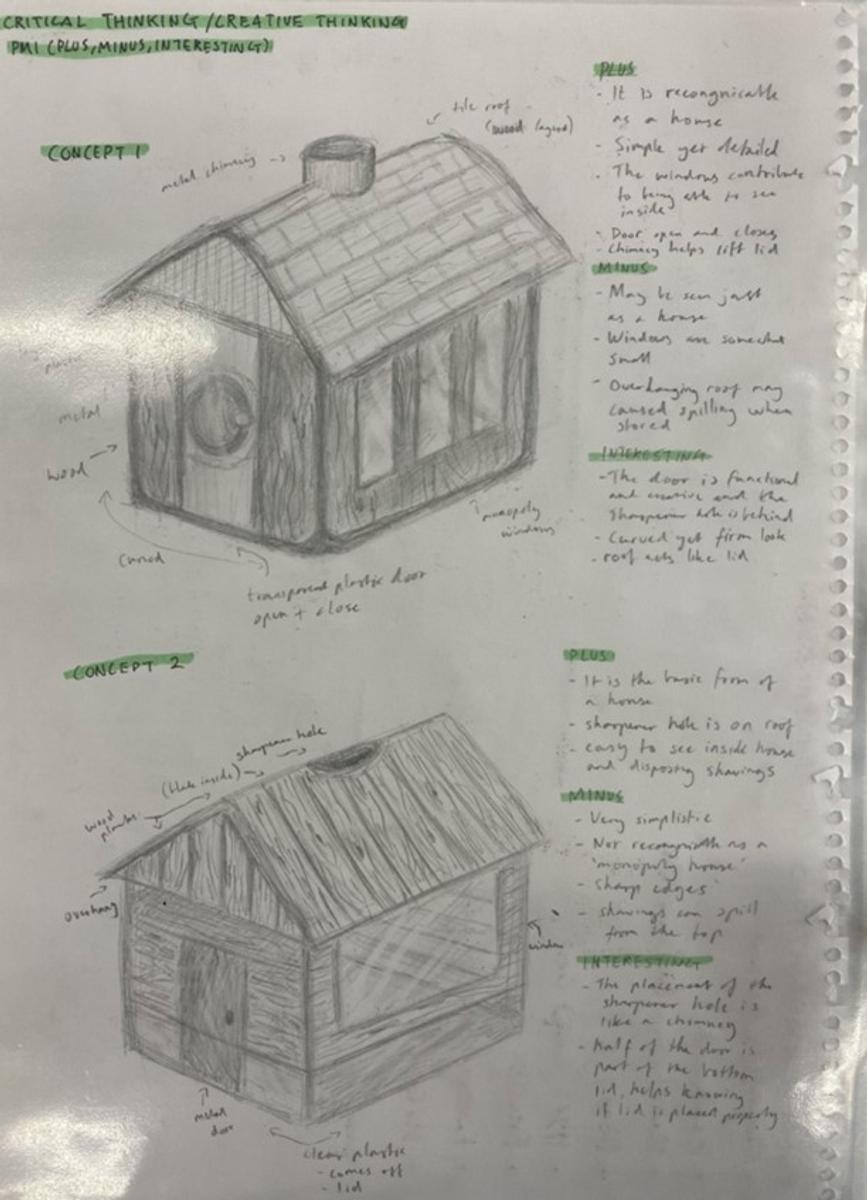 CRITICAL THINKING / CREATIVE THINKING
PMI (PLUS, MINUS, INTERESTING)
CONCEPT 1
metal chimney
tile roof
(wood layered)
metal
wood
curved
transparent plastic door
open + close
monopoly
windows
PLUS
- It is recongnicable
as a house
- Simple yet detailed
- The windows contribute
to being able to see
inside
- Door open and closes
- Chimney helps lift lid
MINUS
- May be seen just
as a house
- Windows are somewhat
small
- Overhanging roof may
caused spilling when
stored
INTERESTING
- The door is functional
and creative and the
sharpener hole is behind
- Curved yet firm look
- roof acts like lid
CONCEPT 2
sharpener hole
(blade inside)
wood
planks
overhang
window
metal
door
clear plastic
- comes off
- lid
PLUS
- It is the basic from of
a house
- sharpener hole is on roof
- easy to see inside house
and disposing shavings
MINUS
- Very simplistic
- Not recongnisable as a
'monopoly house'
- Sharp edges
- shavings can spill
from the top
INTERESTING
- The placement of the
sharpener hole is
like a chimney
- half of the door is
part of the bottom
lid, helps knowing
if lid is placed properly